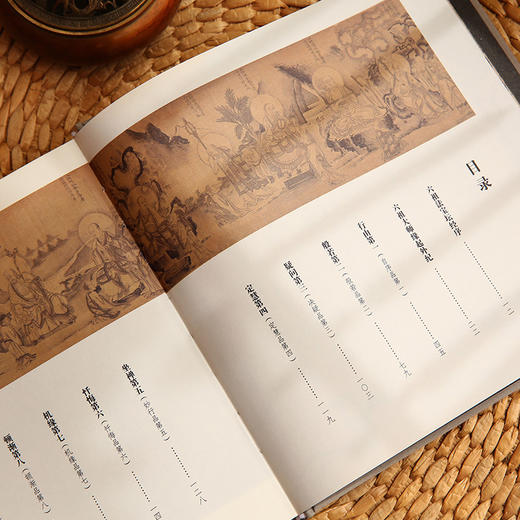 目录
六祖法宝坛经序
六祖大师缘起外纪
行由第一（自序品第一）四五
般若第二（般若品第二）七九
疑问第三（决疑品第三）一〇三
定慧第四（定慧品第四）一一九
坐禅第五（妙行品第五）一二八
忏悔第六（忏悔品第六）
机缘第七（机缘品第七）
顿渐第八（顿渐品第八）